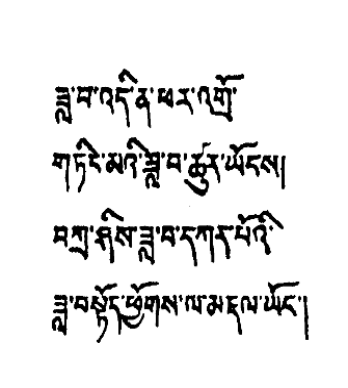 ཟླ་བ་འདི་ན་ཕར་འགྲོ་
གཏིང་མའི་ཟླ་བ་ཚུར་ཡོངས།
བཀྲ་ཤིས་ཟླ་བ་དཀར་པོའི་
ཟླ་བསྟོད་ཕྱོགས་ལ་མཇལ་ཡོང་།